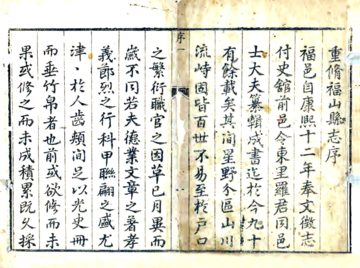 重脩福山縣志序
福邑自康熙十二年奉文徵志
付史館前邑令東里羅君同邑
士大夫纂輯成書迄於今九十
有餘載矣其間星野分區山川
流峙固皆百世不易至於戶口
之繁衍職官之因革日月異而
歲不同若夫德業文章之著孝
義節烈之行科甲聯翩之盛尤
津津於人齒頰間足以光史冊
而垂竹帛者也前或欲修而未
果或修之而未成積累既久採
序
一